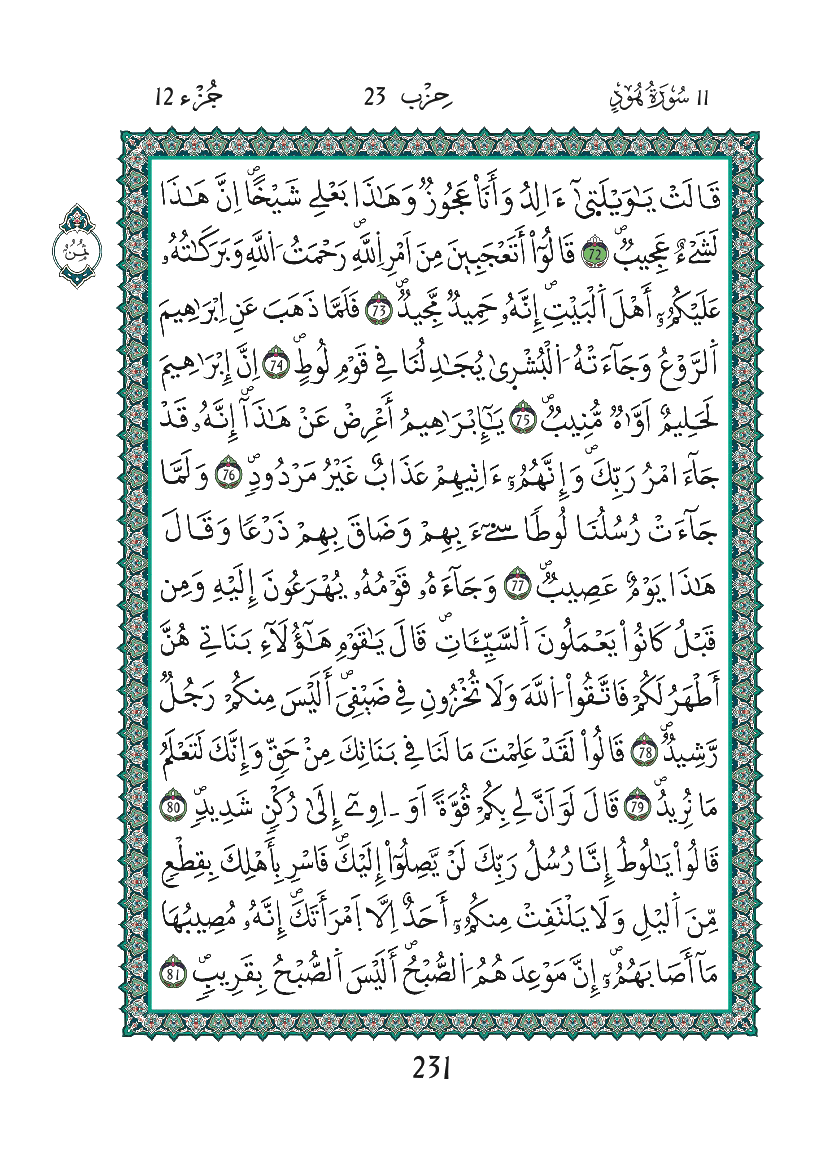 11 سُورَةُ هُودٍ
حِزْب 23
جُزْء 12
ثُمُن
قَالَتْ يَٰوَيْلَتَىٰٓ ءَالِدُ وَأَنَا۠ عَجُوزٞ وَهَٰذَا بَعْلِے شَيْخًاۖ اِنَّ هَٰذَا
لَشَےْءٌ عَجِيبٞۖ 72 قَالُوٓاْ أَتَعْجَبِينَ مِنَ اَمْرِ اِ۬للَّهِۖ رَحْمَتُ اُ۬للَّهِ وَبَرَكَٰتُهُۥ
عَلَيْكُمُۥٓ أَهْلَ اَ۬لْبَيْتِۖ إِنَّهُۥ حَمِيدٞ مَّجِيدٞۖ 73 فَلَمَّا ذَهَبَ عَنِ اِبْرَٰهِيمَ
اَ۬لرَّوْعُ وَجَآءَتْهُ اُ۬لْبُشْر۪ىٰ يُجَٰدِلُنَا فِے قَوْمِ لُوطٍۖ 74 اِنَّ إِبْرَٰهِيمَ
لَحَلِيمٌ اَوَّٰهٞ مُّنِيبٞۖ 75 يَٰٓإِبْرَٰهِيمُ أَعْرِضْ عَنْ هَٰذَآۖ إِنَّهُۥ قَدْ
جَآءَ امْرُ رَبِّكَۖ وَإِنَّهُمُۥٓ ءَاتِيهِمْ عَذَابٌ غَيْرُ مَرْدُودٖۖ 76 وَلَمَّا
جَآءَتْ رُسُلُنَا لُوطٗا سِےٓءَ بِهِمْ وَضَاقَ بِهِمْ ذَرْعٗا وَقَالَ
هَٰذَا يَوْمٌ عَصِيبٞۖ 77 وَجَآءَهُۥ قَوْمُهُۥ يُهْرَعُونَ إِلَيْهِ وَمِن
قَبْلُ كَانُواْ يَعْمَلُونَ اَ۬لسَّيِّـَٔاتِۖ قَالَ يَٰقَوْمِ هَٰٓؤُلَآءِ بَنَاتِے هُنَّ
أَطْهَرُ لَكُمْ فَاتَّقُواْ اُ۬للَّهَ وَلَا تُخْزُونِ فِے ضَيْفِيَۖ أَلَيْسَ مِنكُمْ رَجُلٞ
رَّشِيدٞۖ 78 قَالُواْ لَقَدْ عَلِمْتَ مَا لَنَا فِے بَنَاتِكَ مِنْ حَقّٖ وَإِنَّكَ لَتَعْلَمُ
مَا نُرِيدُۖ 79 قَالَ لَوَ اَنَّ لِے بِكُمْ قُوَّةً اَوَ ـ اوِےٓ إِلَىٰ رُكْنٖ شَدِيدٖۖ 80
قَالُواْ يَٰلُوطُ إِنَّا رُسُلُ رَبِّكَ لَنْ يَّصِلُوٓاْ إِلَيْكَۖ فَاسْرِ بِأَهْلِكَ بِقِطْعٖ
مِّنَ اَ۬ليْلِ وَلَا يَلْتَفِتْ مِنكُمُۥٓ أَحَدٌ اِلَّا اَ۪مْرَأَتَكَۖ إِنَّهُۥ مُصِيبُهَا
مَآ أَصَابَهُمُۥٓۖ إِنَّ مَوْعِدَهُمُ اُ۬لصُّبْحُۖ أَلَيْسَ اَ۬لصُّبْحُ بِقَرِيبٖۖ 81
231